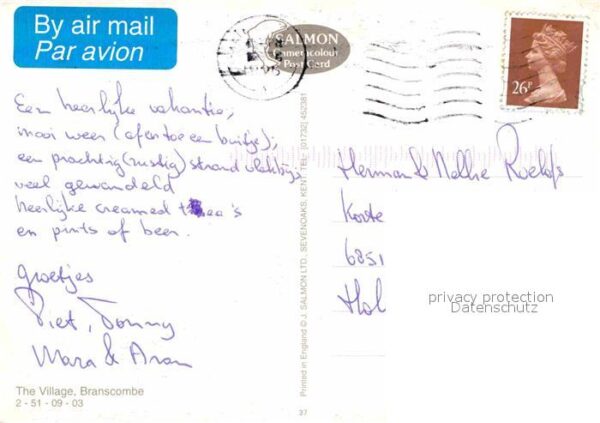 By air mail
Par avion
SALMON
Cameracolour
Post Card
26P
Een heerlijke vakantie;
mooi weer (af en toe een buitje);
een prachtig (rustig) strand vlakbij,
veel gewandeld
heerlijke creamed tea's
en pints of beer.
groetjes
Piet, Tonny
Mara & Aran
Herman & Nellie Roelofs
Korte
6851
Hol
privacy protection
Datenschutz
The Village, Branscombe
2 - 51 - 09 - 03
Printed in England © J. SALMON LTD. SEVENOAKS, KENT. TEL: (01732) 452381
37